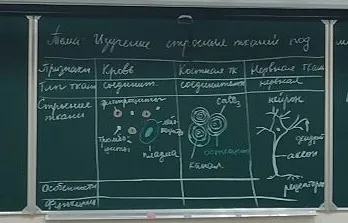 Тема: Изучение строения тканей под
Признаки Кровь Костная тк Нервная ткань
Тип ткани соединит. соединительн нервная
Строение ткани
эритроциты
CaCO₃
нейрон
тромбоциты
плазма
остеоциты
канал
дендрит
аксон
рецепторы
Особенности
функции